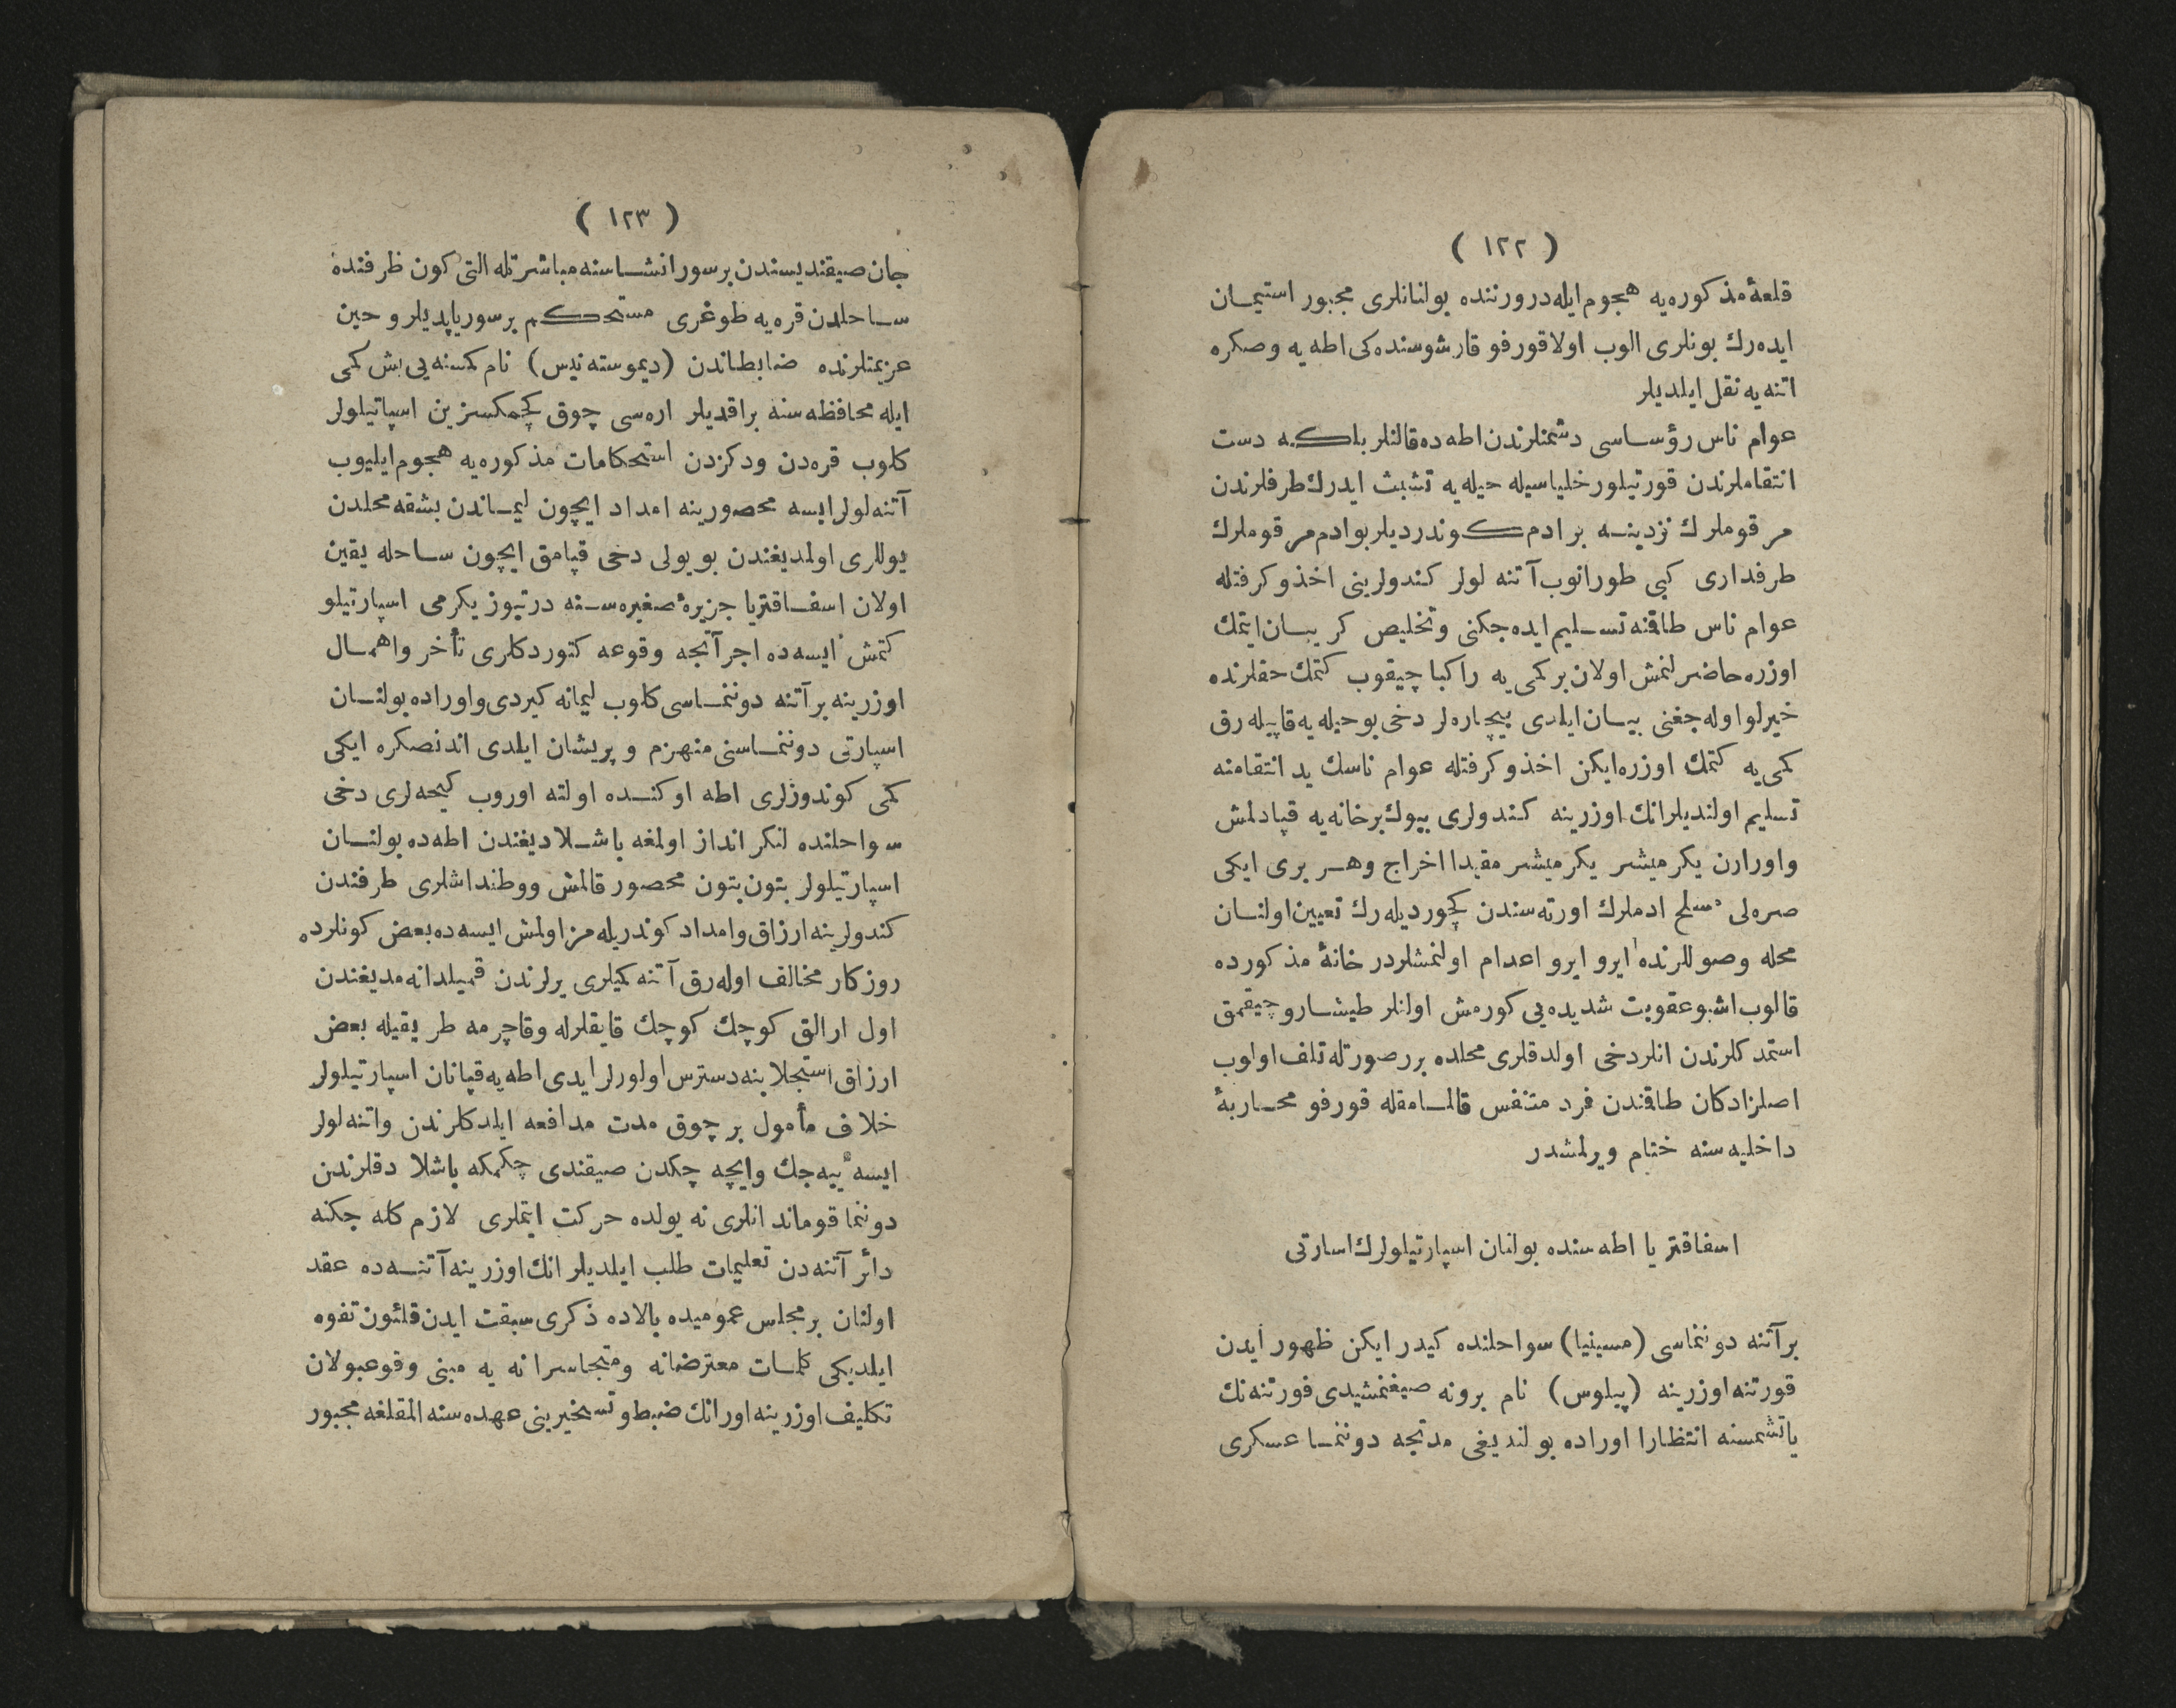 ( ١٢٢ )
قلعهٔ مذكوره‌يه هجوم ايله درورننده بولنانلرى مجبور استيمان
ايده‌رك بونلرى الوب اولاقورفو قارشوسنده كى اطه يه وصكره
اتنه يه نقل ايلديلر
عوام ناس رؤساسى دشمنلرندن اطه ده قالنلر بلكه دست
انتقاملرندن قورتيلور خلياسيله حيله يه تشبث ايدرك طرفلرندن
مرقوملرك نزدينه بر ادم كوندرديلر بوادم مرقوملرك
طرفدارى كبى طورانوب آتنه لولر كندولرينى اخذ وكرفتله
عوام ناس طاقنه تسليم ايده جكنى وتخليص كريبان ايتمك
اوزره حاضرلنمش اولان بر كمى يه راكبا چيقوب كتمك حقلرنده
خيرلو اوله جغنى بيان ايلدى بيچاره لر دخى بوحيله يه قاپيله رق
كمى يه كتمك اوزره ايكن اخذ وكرفتله عوام ناسك يد انتقامنه
تسليم اولنديلر انك اوزرينه كندولرى بيوك برخانه يه قپادلمش
واورارن يكرميشر يكرميشر مقيدا اخراج وهر برى ايكى
صره لى مسلح ادملرك اورته سندن كچورديله رك تعيين اولنان
محله وصوللرنده ايرو ايرو اعدام اولنمشلردر خانهٔ مذكورده
قالوب اشبو عقوبت شديده يى كورمش اولنلر طيشارو چيقمق
استمدكلرندن انلر دخى اولدقلرى محلده بررصورتله تلف اولوب
اصلزادكان طاقندن فرد متنفس قالمامقله قورفو محاربهٔ
داخليه سنه ختام ويرلمشدر
اسفاقتريا اطه سنده بولنان اسپارتيلولرك اسارتى
بر آتنه دونماسى (مسينيا) سواحلنده كيدر ايكن ظهور ايدن
قورتنه اوزرينه (پيلوس) نام برونه صيغنمشيدى فورتنه نك
ياتشمسنه انتظارا اوراده بولنديغى مدتجه دوننما عسكرى
( ١٢٣ )
جان صيقنديسندن برسور انشاسنه مباشرتله التى كون ظرفنده
ساحلدن قره يه طوغرى مستحكم بر سور ياپديلر وحين
عزيمتلرنده ضابطاندن (ديموسته نيس) نام كمسنه يى بش كمى
ايله محافظه سنه براقديلر اره سى چوق كچمكسزين اسپاتيلولر
كلوب قره دن ودكزدن استحكامات مذكوره يه هجوم ايليوب
آتنه لولر ايسه محصورينه امداد ايچون ليماندن بشقه محلدن
يوللرى اولمديغندن بويولى دخى قپامق ايچون ساحله يقين
اولان اسفاقتريا جزيرهٔ صغيره سنه درتيوز يكرمى اسپارتيلو
كتمش ايسه ده اجرآتجه وقوعه كتوردكلرى تأخر واهمال
اوزرينه بر آتنه دونماسى كلوب ليمانه كيردى واوراده بولنان
اسپارتى دونماسنى منهزم وپريشان ايلدى اندنصكره ايكى
كمى كوندوزلرى اطه اوكنده اولته اوروب كيجه لرى دخى
سواحلنده لنكر انداز اولمغه باشلاديغندن اطه ده بولنان
اسپارتيلولر بتون بتون محصور قالمش ووطنداشلرى طرفندن
كندولرينه ارزاق وامداد كوندريله مز اولمش ايسه ده بعض كونلرده
روزكار مخالف اوله رق آتنه كميلرى يرلرندن قميلدانه مديغندن
اول ارالق كوچك كوچك قايقلرله وقاچرمه طريقيله بعض
ارزاق استجلابنه دسترس اولورلر ايدى اطه يه قپانان اسپارتيلولر
خلاف مأمول بر چوق مدت مدافعه ايلدكلرندن واتنه لولر
ايسه ييه جك وايچه چكدن صيقندى چكمكه باشلا دقلرندن
دوننما قوماندانلرى نه يولده حركت ايتملرى لازم كله جكنه
دائر آتنه دن تعليمات طلب ايلديلر انك اوزرينه آتنه ده عقد
اولنان بر مجلس عموميده بالاده ذكرى سبقت ايدن قلئون تفوه
ايلديكى كلمات معترضانه ومتجاسرانه يه مبنى وقوعبولان
تكليف اوزرينه اورانك ضبط وتسخيرينى عهده سنه المقلغه مجبور